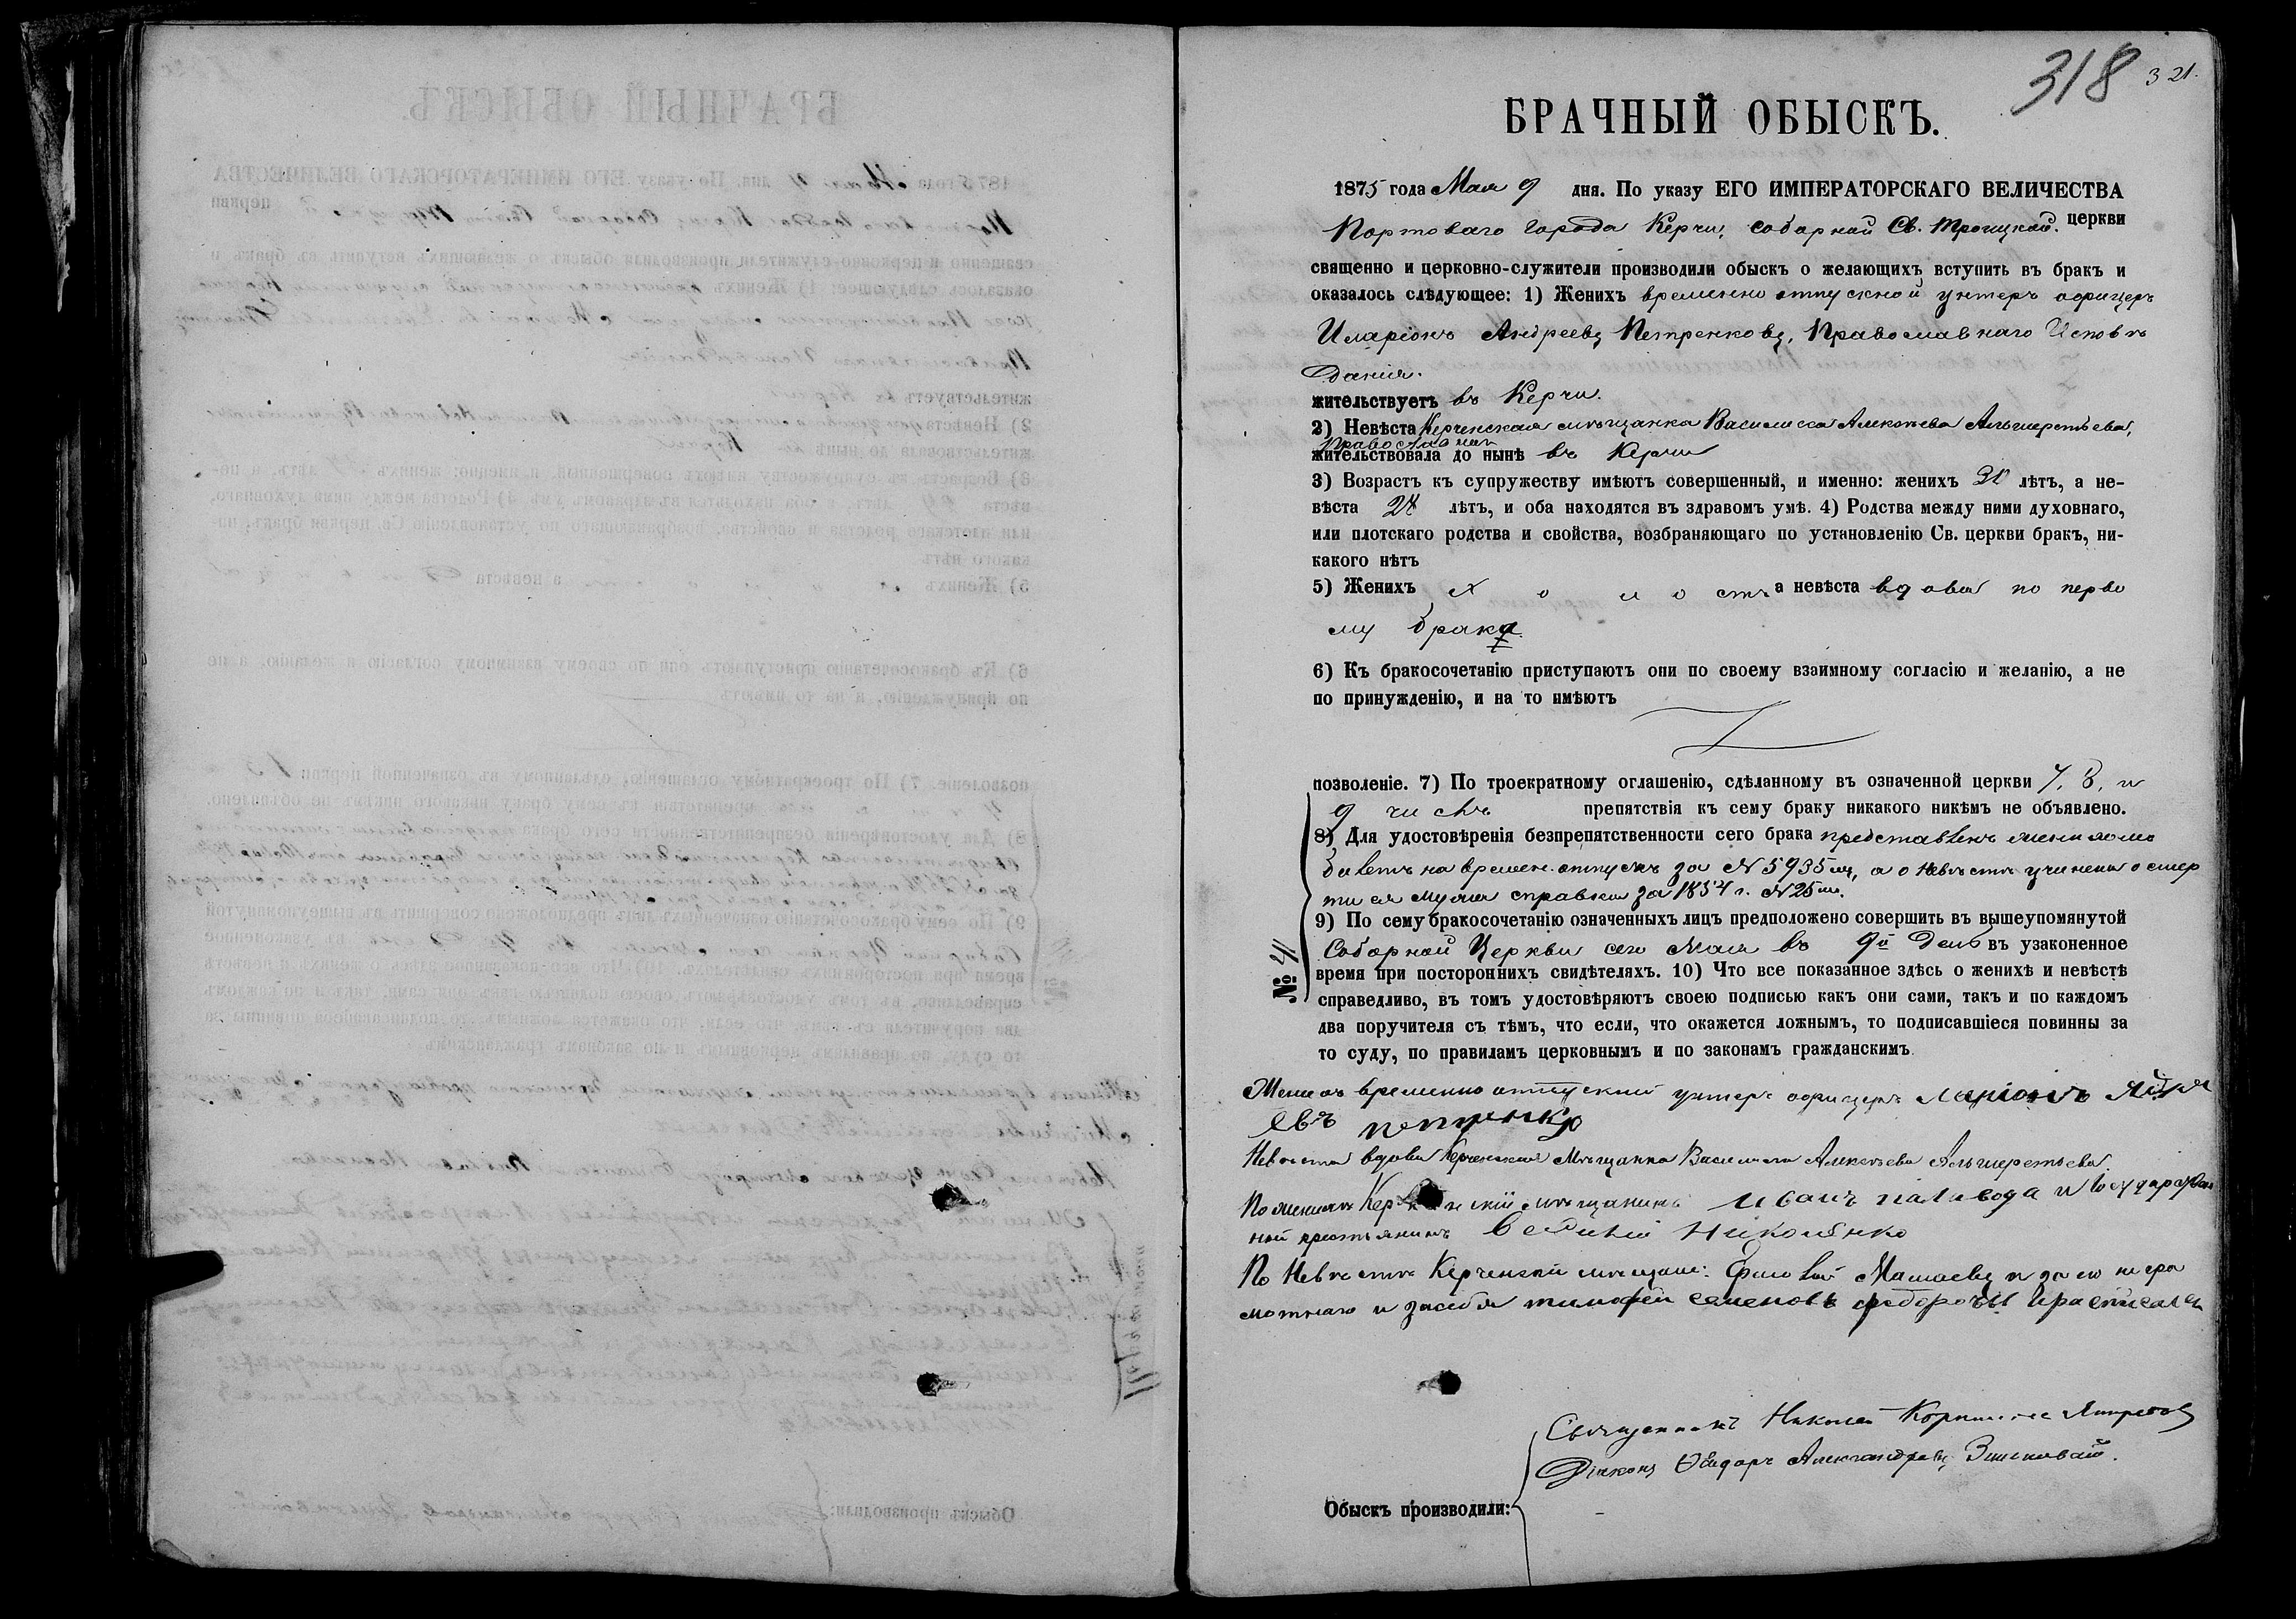 318 321.
БРАЧНЫЙ ОБЫСКЪ.
1875 года Мая 9 дня. По указу ЕГО ИМПЕРАТОРСКАГО ВЕЛИЧЕСТВА
Портоваго города Керчи, соборной Св. Троицкой церкви
священно и церковно-служители производили обыскъ о желающихъ вступить въ бракъ и
оказалось слѣдующее: 1) Женихъ временно отпускной унтеръ офицеръ
Иларіонъ Андреевъ Петренковъ, Православнаго Исповѣ
данія.
жительствуетъ въ Керчи.
2) Невѣста Керченская мѣщанка Василиса Алексѣева
Православная
жительствовала до нынѣ въ Керчи
3) Возрастъ къ супружеству имѣютъ совершенный, и именно: женихъ лѣтъ, а не-
вѣста лѣтъ, и оба находятся въ здравомъ умѣ. 4) Родства между ними духовнаго,
или плотскаго родства и свойства, возбраняющаго по установленію Св. церкви бракъ, ни-
какого нѣтъ
5) Женихъ холостъ а невѣста вдова по перво
му браку.
6) Къ бракосочетанію приступаютъ они по своему взаимному согласію и желанію, а не
по принужденію, и на то имѣютъ
позволеніе. 7) По троекратному оглашенію, сдѣланному въ означенной церкви 7, 8, и
9 числъ препятствія къ сему браку никакого никѣмъ не объявлено.
8) Для удостовѣренія безпрепятственности сего брака представленъ женихомъ
билетъ на времен. отпускъ за N 5935мъ, а о невѣстѣ учинена о смер
ти ея мужа справка за N 25мъ.
9) По сему бракосочетанію означенныхъ лицъ предположено совершить въ вышеупомянутой
Соборной Церкви сего Мая въ 9й день въ узаконенное
№ 41
время при постороннихъ свидѣтеляхъ. 10) Что все показанное здѣсь о женихѣ и невѣстѣ
справедливо, въ томъ удостовѣряютъ своею подписью какъ они сами, такъ и по каждомъ
два поручителя съ тѣмъ, что если, что окажется ложнымъ, то подписавшіеся повинны за
то суду, по правиламъ церковнымъ и по законамъ гражданскимъ
Женихъ временно отпускной унтеръ офицеръ Ларіонъ
евъ
Невѣста вдова Керченская Мѣщанка Василиса Алексѣева
По женихѣ Керченскій мѣщанинъ Иванъ паливода и Государствен
ной крестьянинъ
По Невѣстѣ Керченскій мѣщан: и за его негра
мотнаго и засебя тимофей семеновъ федоровъ расписался
Священникъ Николай
Діаконъ Ѳеодоръ Александровъ
Обыскъ производили: